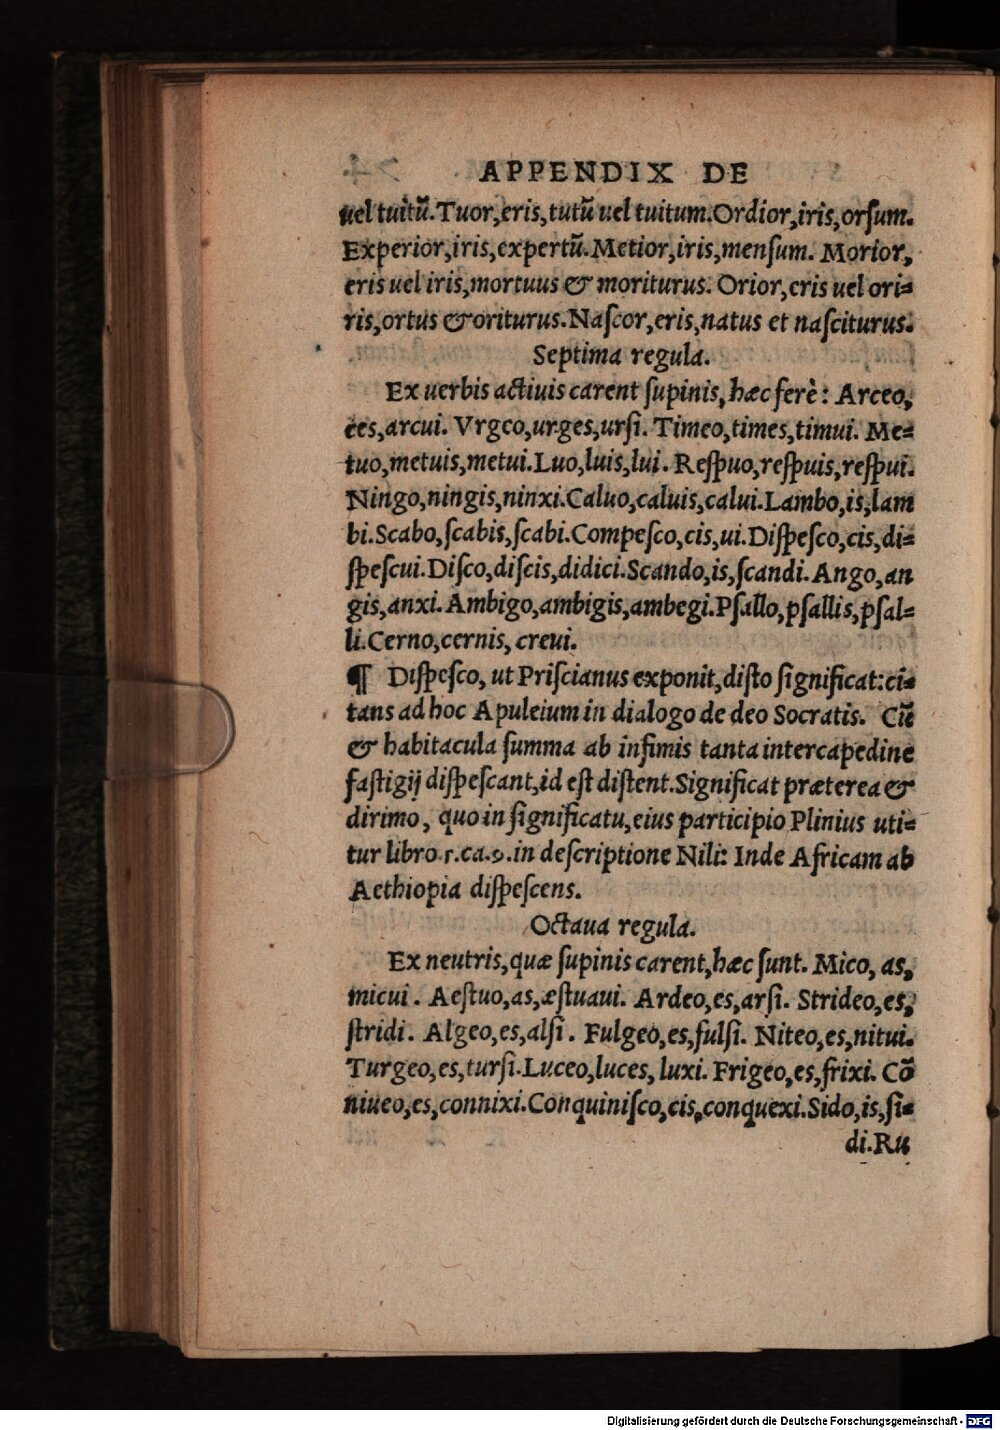 APPENDIX DE
uel tuitū. Tuor, eris, tutū uel tuitum. Ordior, iris, orſum.
Experior, iris, expertū. Metior, iris, menſum. Morior,
eris uel iris, mortuus & moriturus. Orior, eris uel ori=
ris, ortus & oriturus. Naſcor, eris, natus et naſciturus.
Septima regula.
Ex uerbis actiuis carent ſupinis, hæc ferè: Arceo,
ces, arcui. Vrgeo, urges, urſi. Timeo, times, timui. Me=
tuo, metuis, metui. Luo, luis, lui. Reſpuo, reſpuis, reſpui.
Ningo, ningis, ninxi. Caluo, caluis, calui. Lambo, is, lam
bi. Scabo, ſcabis, ſcabi. Compeſco, cis, ui. Diſpeſco, cis, di=
ſpeſcui. Diſco, diſcis, didici. Scando, is, ſcandi. Ango, an
gis, anxi. Ambigo, ambigis, ambegi. Pſallo, pſallis, pſal=
li. Cerno, cernis, creui.
¶ Diſpeſco, ut Priſcianus exponit, diſto ſignificat: ci=
tans ad hoc Apuleium in dialogo de deo Socratis. Cū
& habitacula ſumma ab infimis tanta intercapedine
faſtigij diſpeſcant, id eſt diſtent. Significat præterea &
dirimo, quo in ſignificatu, eius participio Plinius uti=
tur libro .5. ca. 9. in deſcriptione Nili: Inde Africam ab
Aethiopia diſpeſcens.
Octaua regula.
Ex neutris, quæ ſupinis carent, hæc ſunt. Mico, as,
micui. Aeſtuo, as, æſtuaui. Ardeo, es, arſi. Strideo, es,
ſtridi. Algeo, es, alſi. Fulgeo, es, fulſi. Niteo, es, nitui.
Turgeo, es, turſi. Luceo, luces, luxi. Frigeo, es, frixi. Cō
niueo, es, connixi. Conquiniſco, cis, conquexi. Sido, is, ſi=
di. Ru
Digitalisierung gefördert durch die Deutsche Forschungsgemeinschaft - DFG